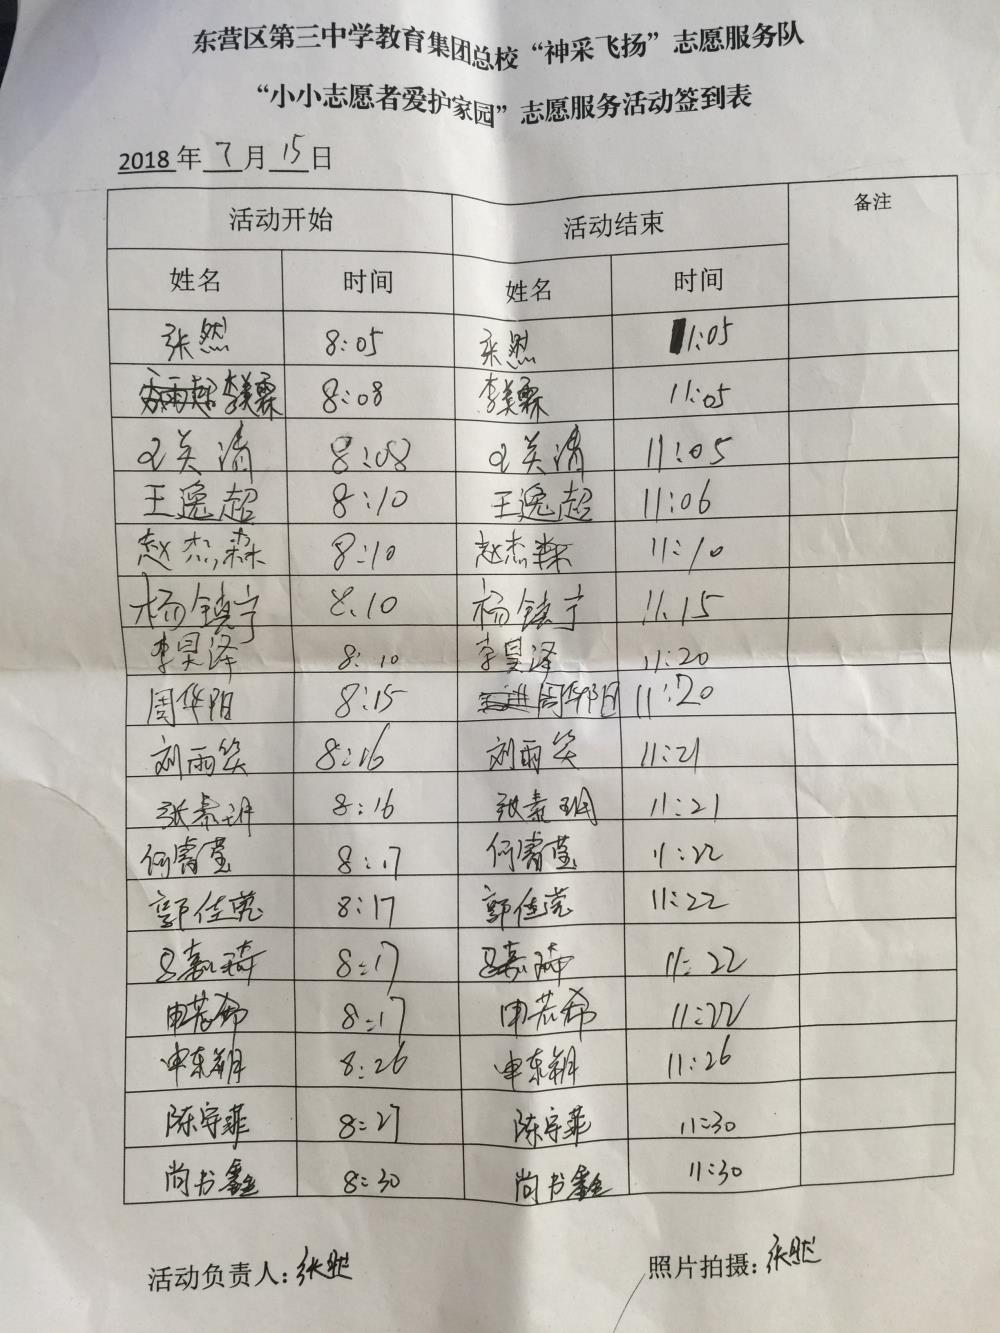 东营区第三中学教育集团总校“神采飞扬”志愿服务队
“小小志愿者爱护家园”志愿服务活动签到表
2018年7月15日
活动开始 活动结束 备注
姓名 时间 姓名 时间
张然 8:05 张然 11:05
李美霖 8:08 李美霖 11:05
英清 8:08 英清 11:05
王逸超 8:10 王逸超 11:06
赵杰森 8:10 赵杰森 11:10
杨镇宁 8:10 杨镇宁 11:15
李昊泽 8:10 李昊泽 11:20
周华阳 8:15 周华阳 11:20
刘雨笑 8:16 刘雨笑 11:21
张素玥 8:16 张素玥 11:21
何睿莹 8:17 何睿莹 11:22
郭佳莞 8:17 郭佳莞 11:22
吕嘉琦 8:17 吕嘉琦 11:22
8:17 11:22
申东朔 8:26 申东朔 11:26
陈宇菲 8:27 陈宇菲 11:30
尚书鑫 8:30 尚书鑫 11:30
活动负责人:张然 照片拍摄:张然